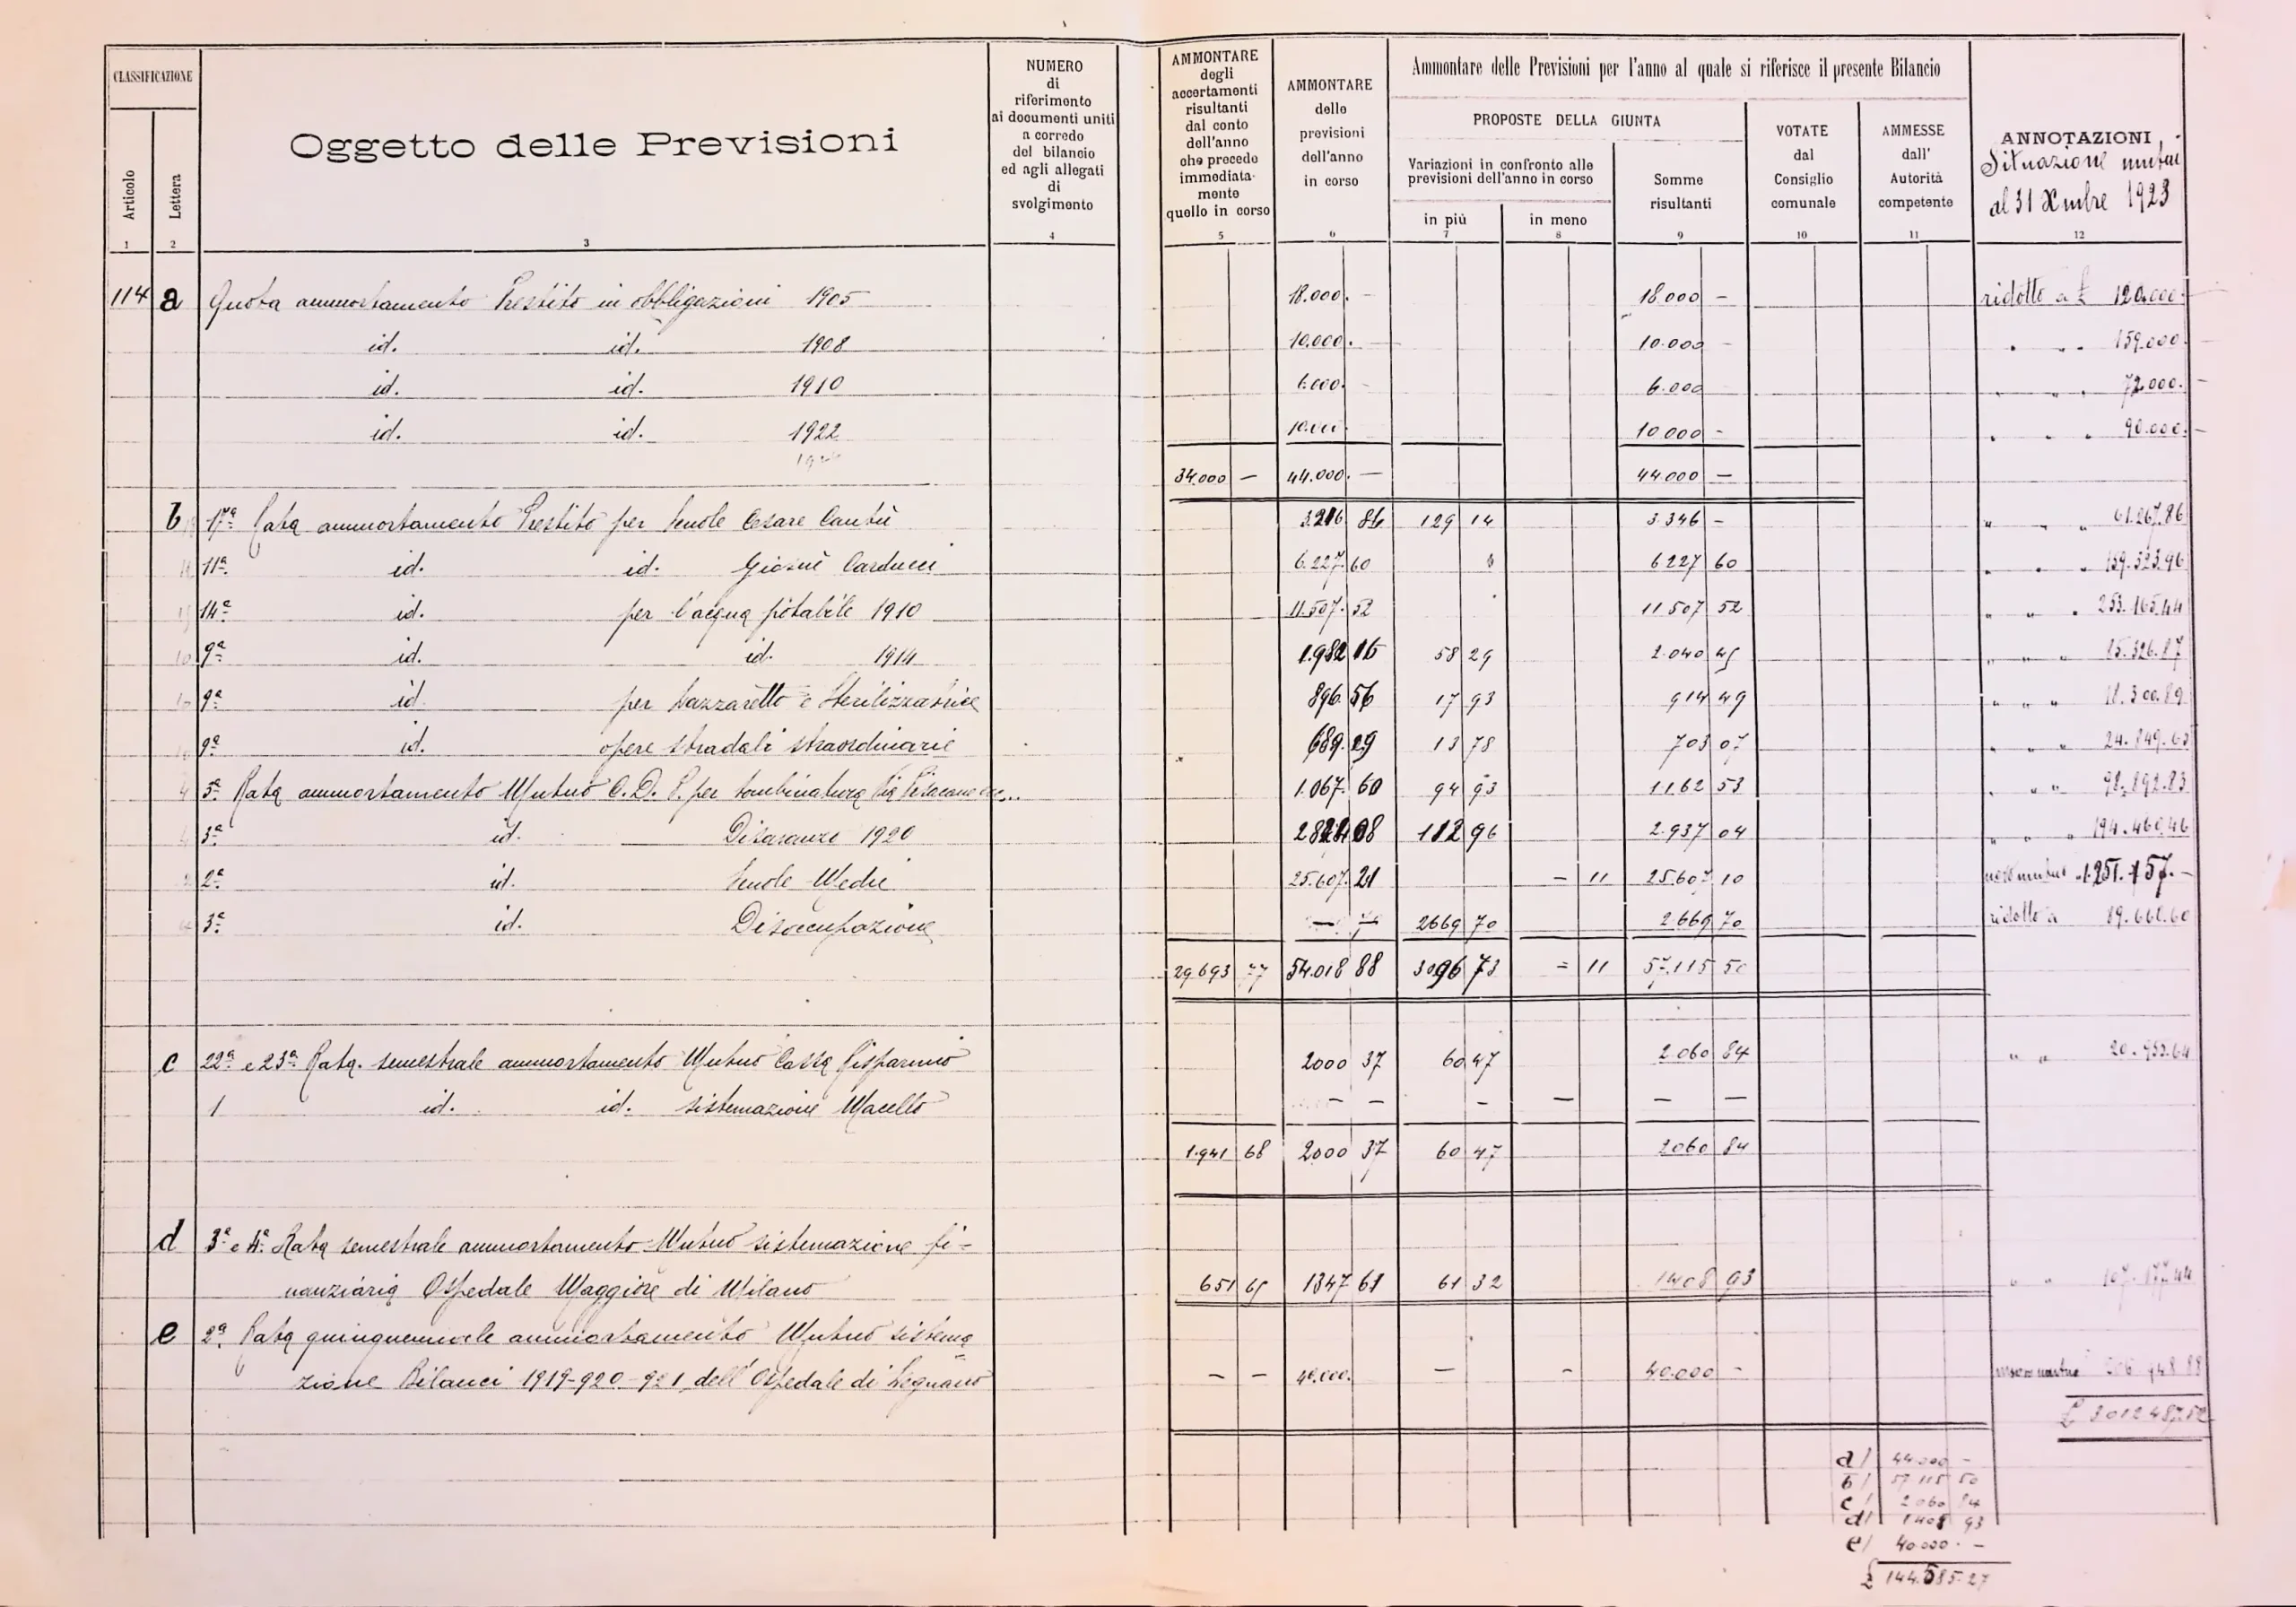 CLASSIFICAZIONE
Articolo
Lettera
Oggetto delle Previsioni
NUMERO
di
riferimento
ai documenti uniti
a corredo
del bilancio
ed agli allegati
di
svolgimento
AMMONTARE
degli
accertamenti
risultanti
dal conto
dell'anno
che precede
immediata-
mente
quello in corso
AMMONTARE
delle
previsioni
dell'anno
in corso
Ammontare delle Previsioni per l'anno al quale si riferisce il presente Bilancio
PROPOSTE DELLA GIUNTA
Variazioni in confronto alle
previsioni dell'anno in corso
in più
in meno
Somme
risultanti
VOTATE
dal
Consiglio
comunale
AMMESSE
dall'
Autorità
competente
ANNOTAZIONI
Situazione mutui
al 31 Xmbre 1923
1 2 3 4 5 6 7 8 9 10 11 12
114 a Quota ammortamento Prestito in obbligazioni 1905 18.000. — 18.000 — ridotto a £ 120.000.—
id. id. 1908 10.000. — 10.000 — " " " 159.000.—
id. id. 1910 6.000. - 6.000 " " " 72.000.—
id. id. 1922 10.000. 10.000 - " " " 90.000.—
34.000 — 44.000. — 44.000 —
b 17ª Rata ammortamento Prestito per Scuole Cesare Cantù 3.216 86 129 14 3.346 - " " " 61.267.86
11ª id. id. Giosuè Carducci 6.227.60 6227 60 " " " 159.323.96
14ª id. per l'acqua potabile 1910 11.507.52 11.507 52 " " " 253.165.44
9ª id. id. 1914 1.982 16 58 29 2.040 45 " " " 15.326.87
9ª id. per Lazzaretto e Sterilizzatrice 896.56 17 93 914 49 " " " 18.300.89
9ª id. opere stradali straordinarie 689.29 13 78 703 07 " " " 24.849.63
5ª Rata ammortamento Mutuo C.D.P. per tombinatura Via Pisacane ecc... 1.067.60 94 93 1.162 53 " " " 98.892.83
3ª id. Disavanzo 1920 08 112 96 2.937 04 " " " 194.460.46
2ª id. Scuole Medie 25.607.21 — 11 25.607 10 1.251.157.—
3ª id. Disoccupazione — — 2669 70 2.669 70 ridotto a 89.660.60
29.693 77 54.018 88 3096 73 = 11 57.115 50
c 22ª e 23ª Rata semestrale ammortamento Mutuo Cassa Risparmio 2000 37 60 47 2.060 84 " " 20.953.64
1 id. id. sistemazione Macello — — — — — —
1.941 68 2000 37 60 47 2060 84
d 3ª e 4ª Rata semestrale ammortamento Mutuo sistemazione fi-
nanziaria Ospedale Maggiore di Milano 651 65 1347 61 61 32 1408 93 " " 107.177.44
e 2ª Rata quinquennale ammortamento Mutuo sistema
zione Bilanci 1919-920-921 dell'Ospedale di Legnano — — 40.000. — - 40.000 -
a/ 44.000 -
b/ 57.115 50
c/ 2060 84
d/ 1408 93
e/ 40.000. —
£ 144.585.27